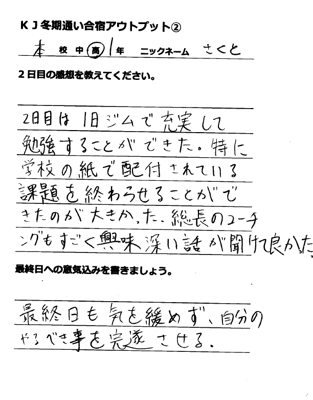 KJ冬期通い合宿アウトプット②
本 校 中高 1年 ニックネーム さくと
2日目の感想を教えてください。
2日目は1日ジムで充実して
勉強することができた。特に
学校の紙で配付されている
課題を終わらせることがで
きたのが大きかった。総長のコーチ
ングもすごく興味深い話が聞けて良かった
最終日への意気込みを書きましょう。
最終日も気を緩めず、自分の
やるべき事を完遂させる。